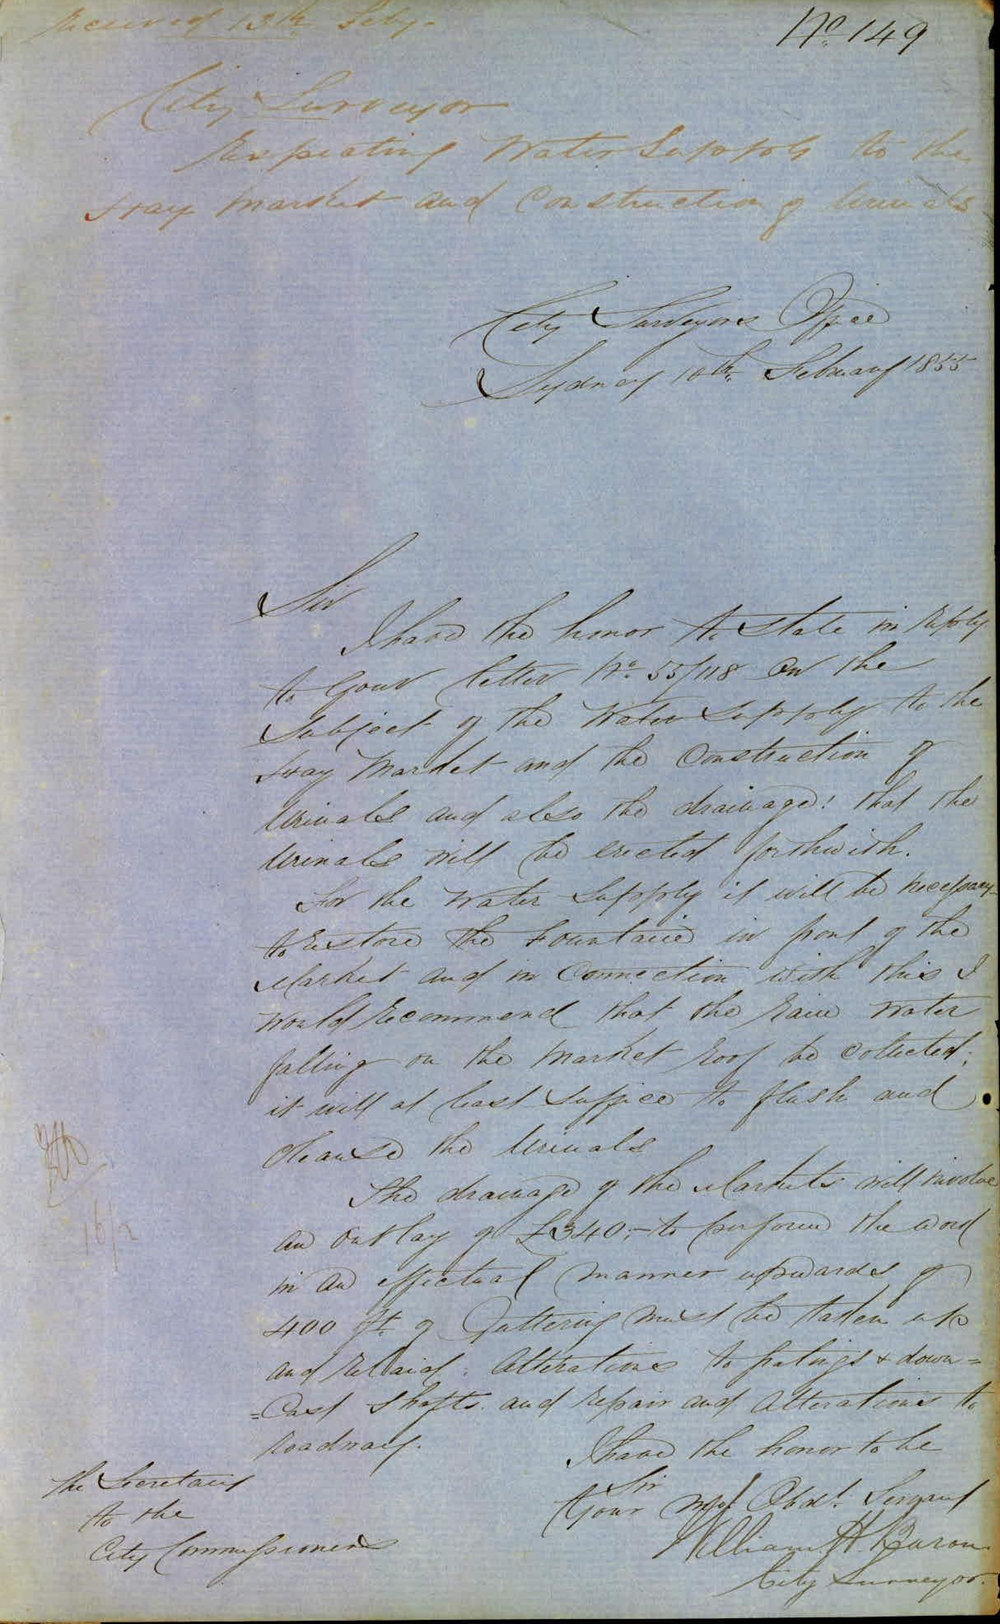 Received 13th Feby.
No. 149
City Surveyor
Respecting Water Supply to the
Hay Market and Construction of Urinals
City Surveyors Office
Sydney 10th February 1855
Sir
I have the honor to state in reply
to your letter No. 55/118 on the
Subject of the Water Supply to the
Hay Market and the Construction of
Urinals and also the drainage: that the
Urinals will be erected forthwith.
For the Water Supply it will be necessary
to restore the Fountain in front of the
Market and in Connection with this I
would recommend that the Rain Water
falling on the Market roof be collected;
it will at least suffice to flush and
cleanse the Urinals
The drainage of the Markets will involve
an outlay of £340;- to perform the work
in an effectual manner upwards of
400 ft. of Guttering must be taken up
and relaid: Alterations to gratings & down=
=Cast Shafts. and repair and Alterations to
Roadway.
I have the honor to be
Sir
Your Most Obdt. Servant
William H.
City Surveyor.
The Secretary
to the
City Commissioners
16/2